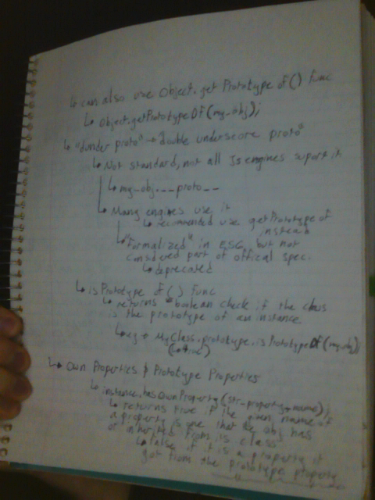 ↳ can also use Object.getPrototypeOf() func
↳ Object.getPrototypeOf(my_obj);
↳ "dunder proto" → "double underscore proto"
↳ Not standard, not all JS engines support it
↳ my_obj.__proto__
↳ Many engines use it
↳ recommended use getPrototypeOf
instead
↳ "formalized" in ES6, but not
considered part of official spec.
↳ deprecated
↳ isPrototypeOf() func
↳ returns boolean check if the class
is the prototype of an instance
↳ eg → MyClass.prototype.isPrototypeOf(my_obj);
↳ Own Properties & Prototype Properties
↳ instance.hasOwnProperty(str_property_name);
↳ returns true if the given name of
a property is one that the obj has
or inherited from its class
↳ false if it is a property it
got from the prototype property